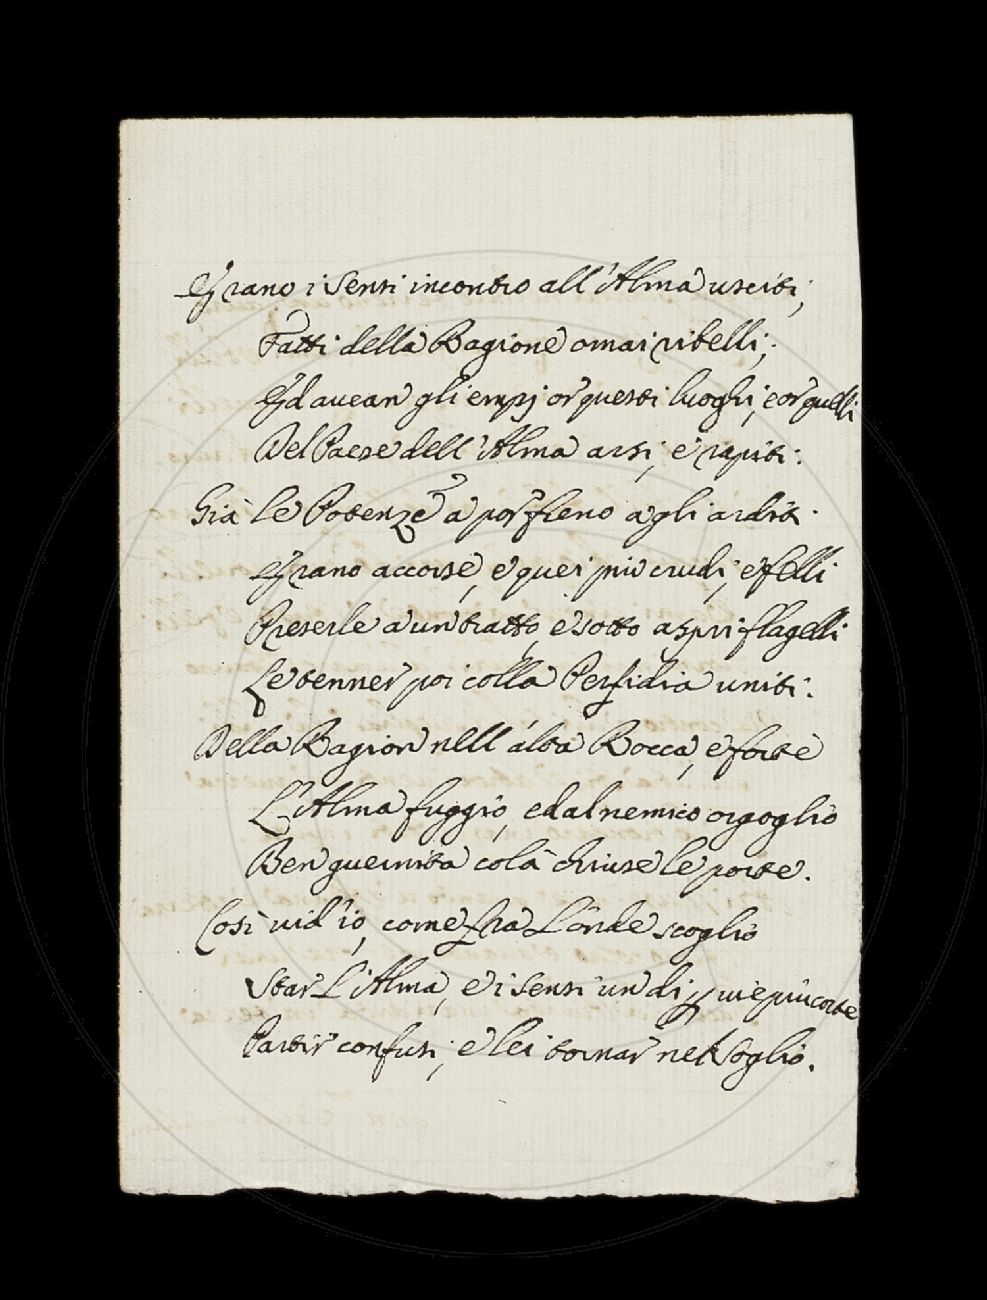 Erano i Sensi incontro all'Alma usciti,
Fatti della Ragione omai ribelli;
Ed avean gli empj or questi luoghi, e or quelli
Del Paese dell'Alma arsi, e rapiti:
Già le Potenze a por freno agli arditi
Erano accorse, e quei più crudi, e felli
Preserle a un tratto, e sotto aspri flagelli
Le tenner poi colla Perfidia uniti:
Della Ragion nell'alta Rocca, e forte
L'Alma fuggio, e dal nemico orgoglio
Ben guernita colà chiuse le porte.
Così vid'io, come fra l'onde scoglio
Star l'Alma, e i sensi un dì per vie più corte
Partir confusi, e lei tornar nel Soglio.